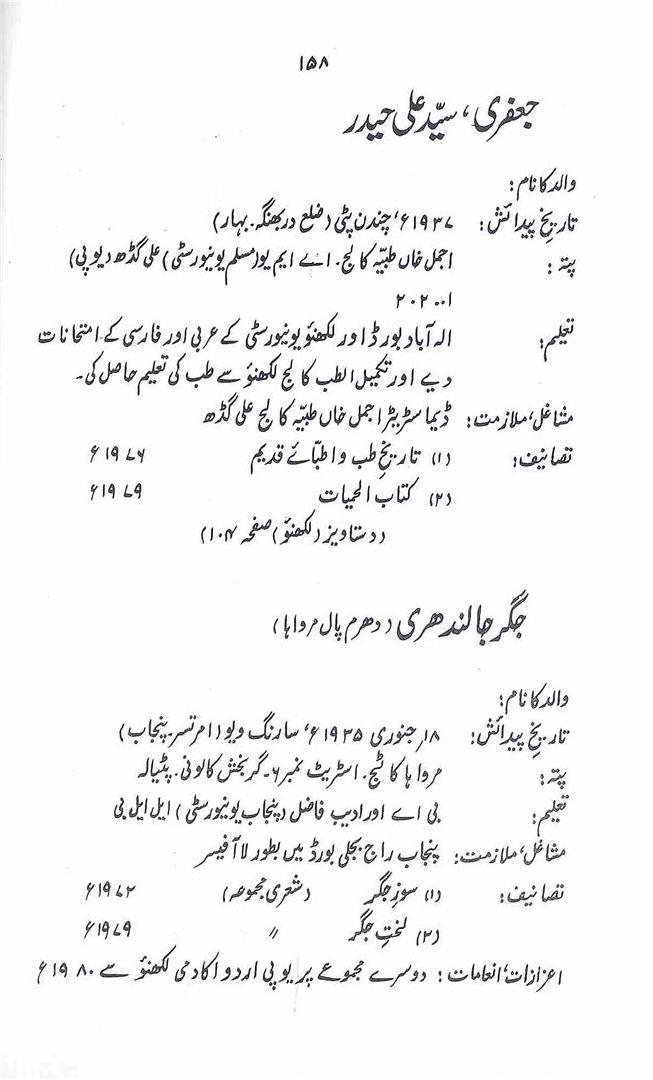 ۱۵۸
جعفری، سیّد علی حیدر
والد کا نام:
تاریخِ پیدائش: ۱۹۳۷ء، چندن پٹی (ضلع دربھنگہ۔ بہار)
پتہ: اجمل خاں طبیّہ کالج۔ اے ایم یو (مسلم یونیورسٹی) علی گڈھ (یو پی)
۲۰۲۰۰۱
تعلیم: الہ آباد بورڈ اور لکھنؤ یونیورسٹی کے عربی اور فارسی کے امتحانات
دیے اور تکمیل الطب کالج لکھنؤ سے طب کی تعلیم حاصل کی۔
مشاغل، ملازمت: ڈیماسٹریٹر اجمل خاں طبیّہ کالج علی گڈھ
تصانیف: (۱) تاریخِ طب و اطبّائے قدیم ۱۹۷۶ء
(۲) کتاب الحمیات ۱۹۷۹ء
(دستاویز (لکھنؤ) صفحہ ۱۰۴)
جگر جالندھری (دھرم پال مرواہا)
والد کا نام:
تاریخِ پیدائش: ۱۸؍ جنوری ۱۹۳۵ء، سارنگ ویو (امرتسر۔ پنجاب)
پتہ: مرواہا کاٹیج۔ اسٹریٹ نمبر ۶۔ گربخش کالونی۔ پٹیالہ
تعلیم: بی اے اور ادیب فاضل (پنجاب یونیورسٹی) ایل ایل بی
مشاغل، ملازمت: پنجاب راج بجلی بورڈ میں بطور لا آفیسر
تصانیف: (۱) سوزِ جگر (شعری مجموعہ) ۱۹۷۲ء
(۲) لختِ جگر 〃 ۱۹۷۹ء
اعزازات، انعامات: دوسرے مجموعے پر یو پی اردو اکادمی لکھنؤ سے ۱۹۸۰ء